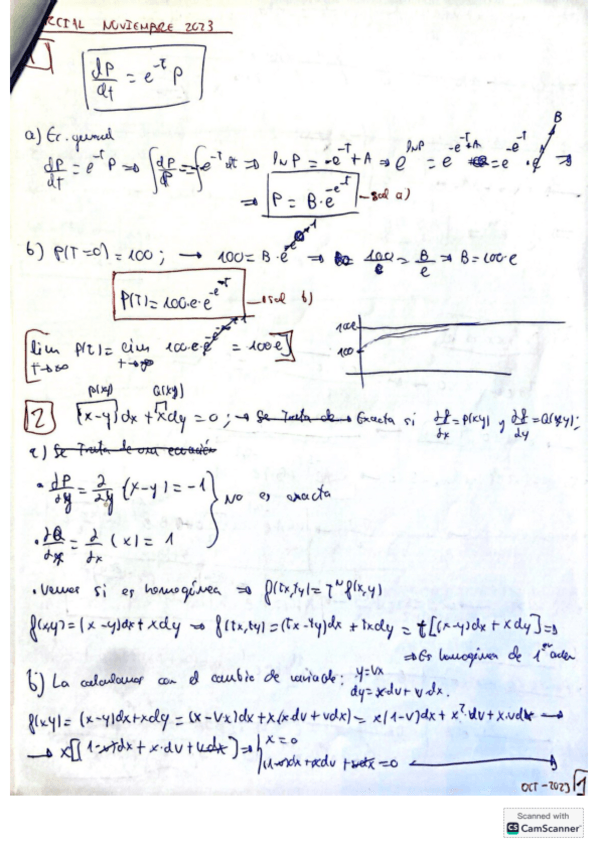 PARCIAL NOVIEMBRE 2023
1
dP/dt = e^-t P
a) Ec. general
dP/dt = e^-t P ⇒ ∫ dP/P = ∫ e^-t dt ⇒ ln P = -e^-t + A ⇒ e^lnP = e^-e^-t+A = e^-e^-t · B ⇒
⇒ P = B·e^-e^-t — sol a)
b) P(t=0) = 100 ; → 100 = B·e ⇒ 100/e = B/e ⇒ B = 100·e
P(t) = 100·e·e^-e^-t — sol b)
lim t→∞ P(t) = lim t→∞ 100·e·e = 100e
100e
100
P(xy) Q(xy)
2 (x-y)dx + xdy = 0 ; → Se trata de → Exacta si
a) Se trata de una ecuación
· ∂P/∂y = ∂/∂y (x-y) = -1
No es exacta
· ∂Q/∂x = ∂/∂x (x) = 1
· Vemos si es homogénea ⇒ f(tx,ty) = t^N f(x,y)
f(x,y) = (x-y)dx + xdy ⇒ f(tx,ty) = (tx-ty)dx + txdy = t[(x-y)dx + xdy] ⇒
⇒ Es homogénea de 1er orden
b) La calculamos con el cambio de variable: y=vx
dy = x·dv + v·dx.
f(xy) = (x-y)dx + xdy = (x-vx)dx + x(xdv + vdx) = x(1-v)dx + x²·dv + x·vdx →
→ x[(1-v)dx + x·dv + vdx] ⇒ x=0
(1-v)dx + xdv + vdx = 0
OCT-2023 1
Scanned with
CS CamScanner